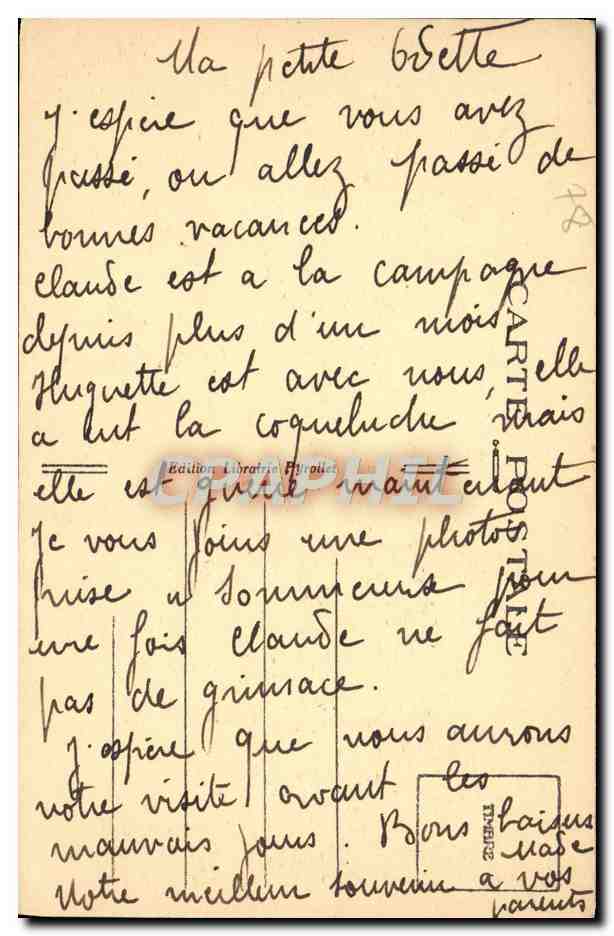 Ma petite Odette
J'espère que vous avez
passé, ou allez passé de
bonnes vacances.
Claude est a la campagne
depuis plus d'un mois
Huguette est avec nous, elle
a eut la coqueluche mais
elle est guerie maintenant
Je vous joins une photos
prise a Sommecense pour
une fois Claude ne fait
pas de grimace.
J'espère que nous aurons
votre visite avant les
mauvais jours. Bons baisers
Made
Notre meilleur souvenir a vos
parents
78
CARTE POSTALE
Edition Librairie Pyrollet
TIMBRE
CPAPHIL